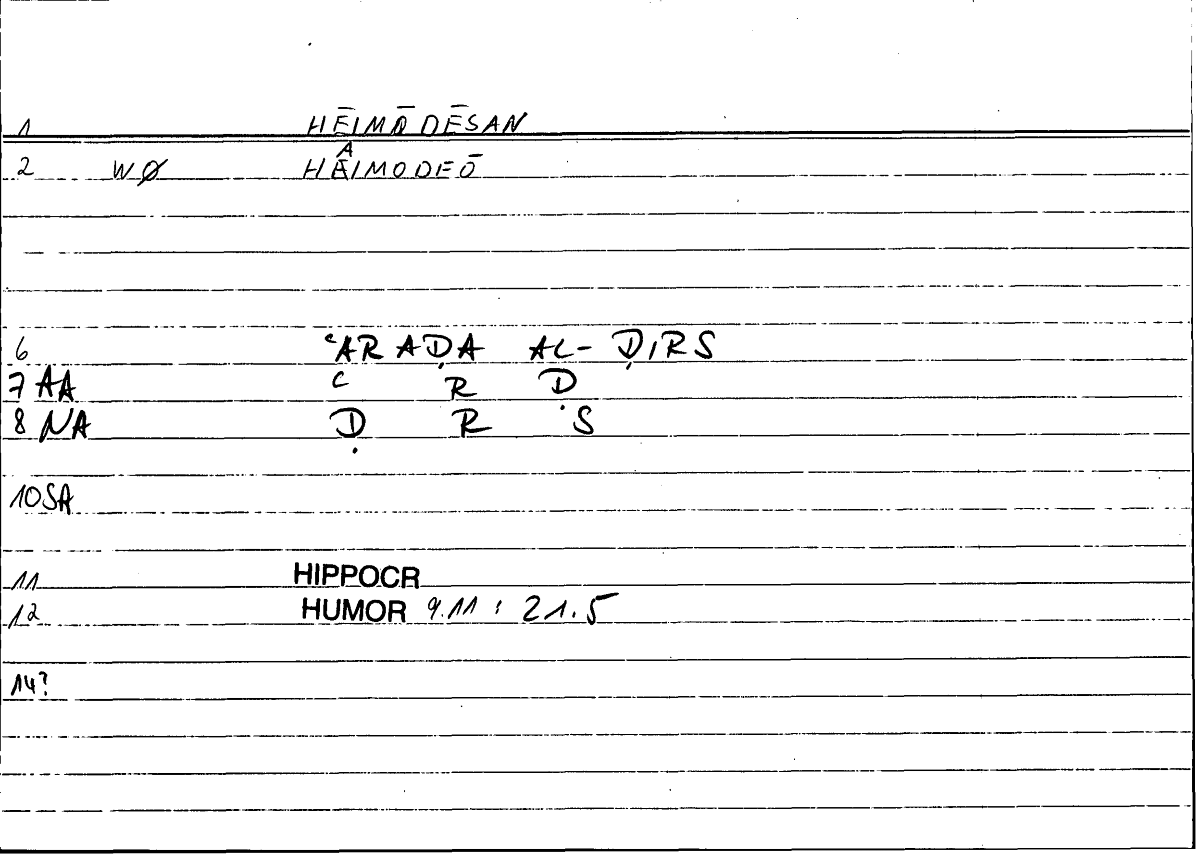 1 HĒIMŌDĒSAN
2 WØ HAIMODEŌ
6 ʿARAḌA AL-ḌIRS
7 AA ʿ R Ḍ
8 NA Ḍ R S
10 SA
11 HIPPOCR
12 HUMOR 9.11 : 21.5
14?